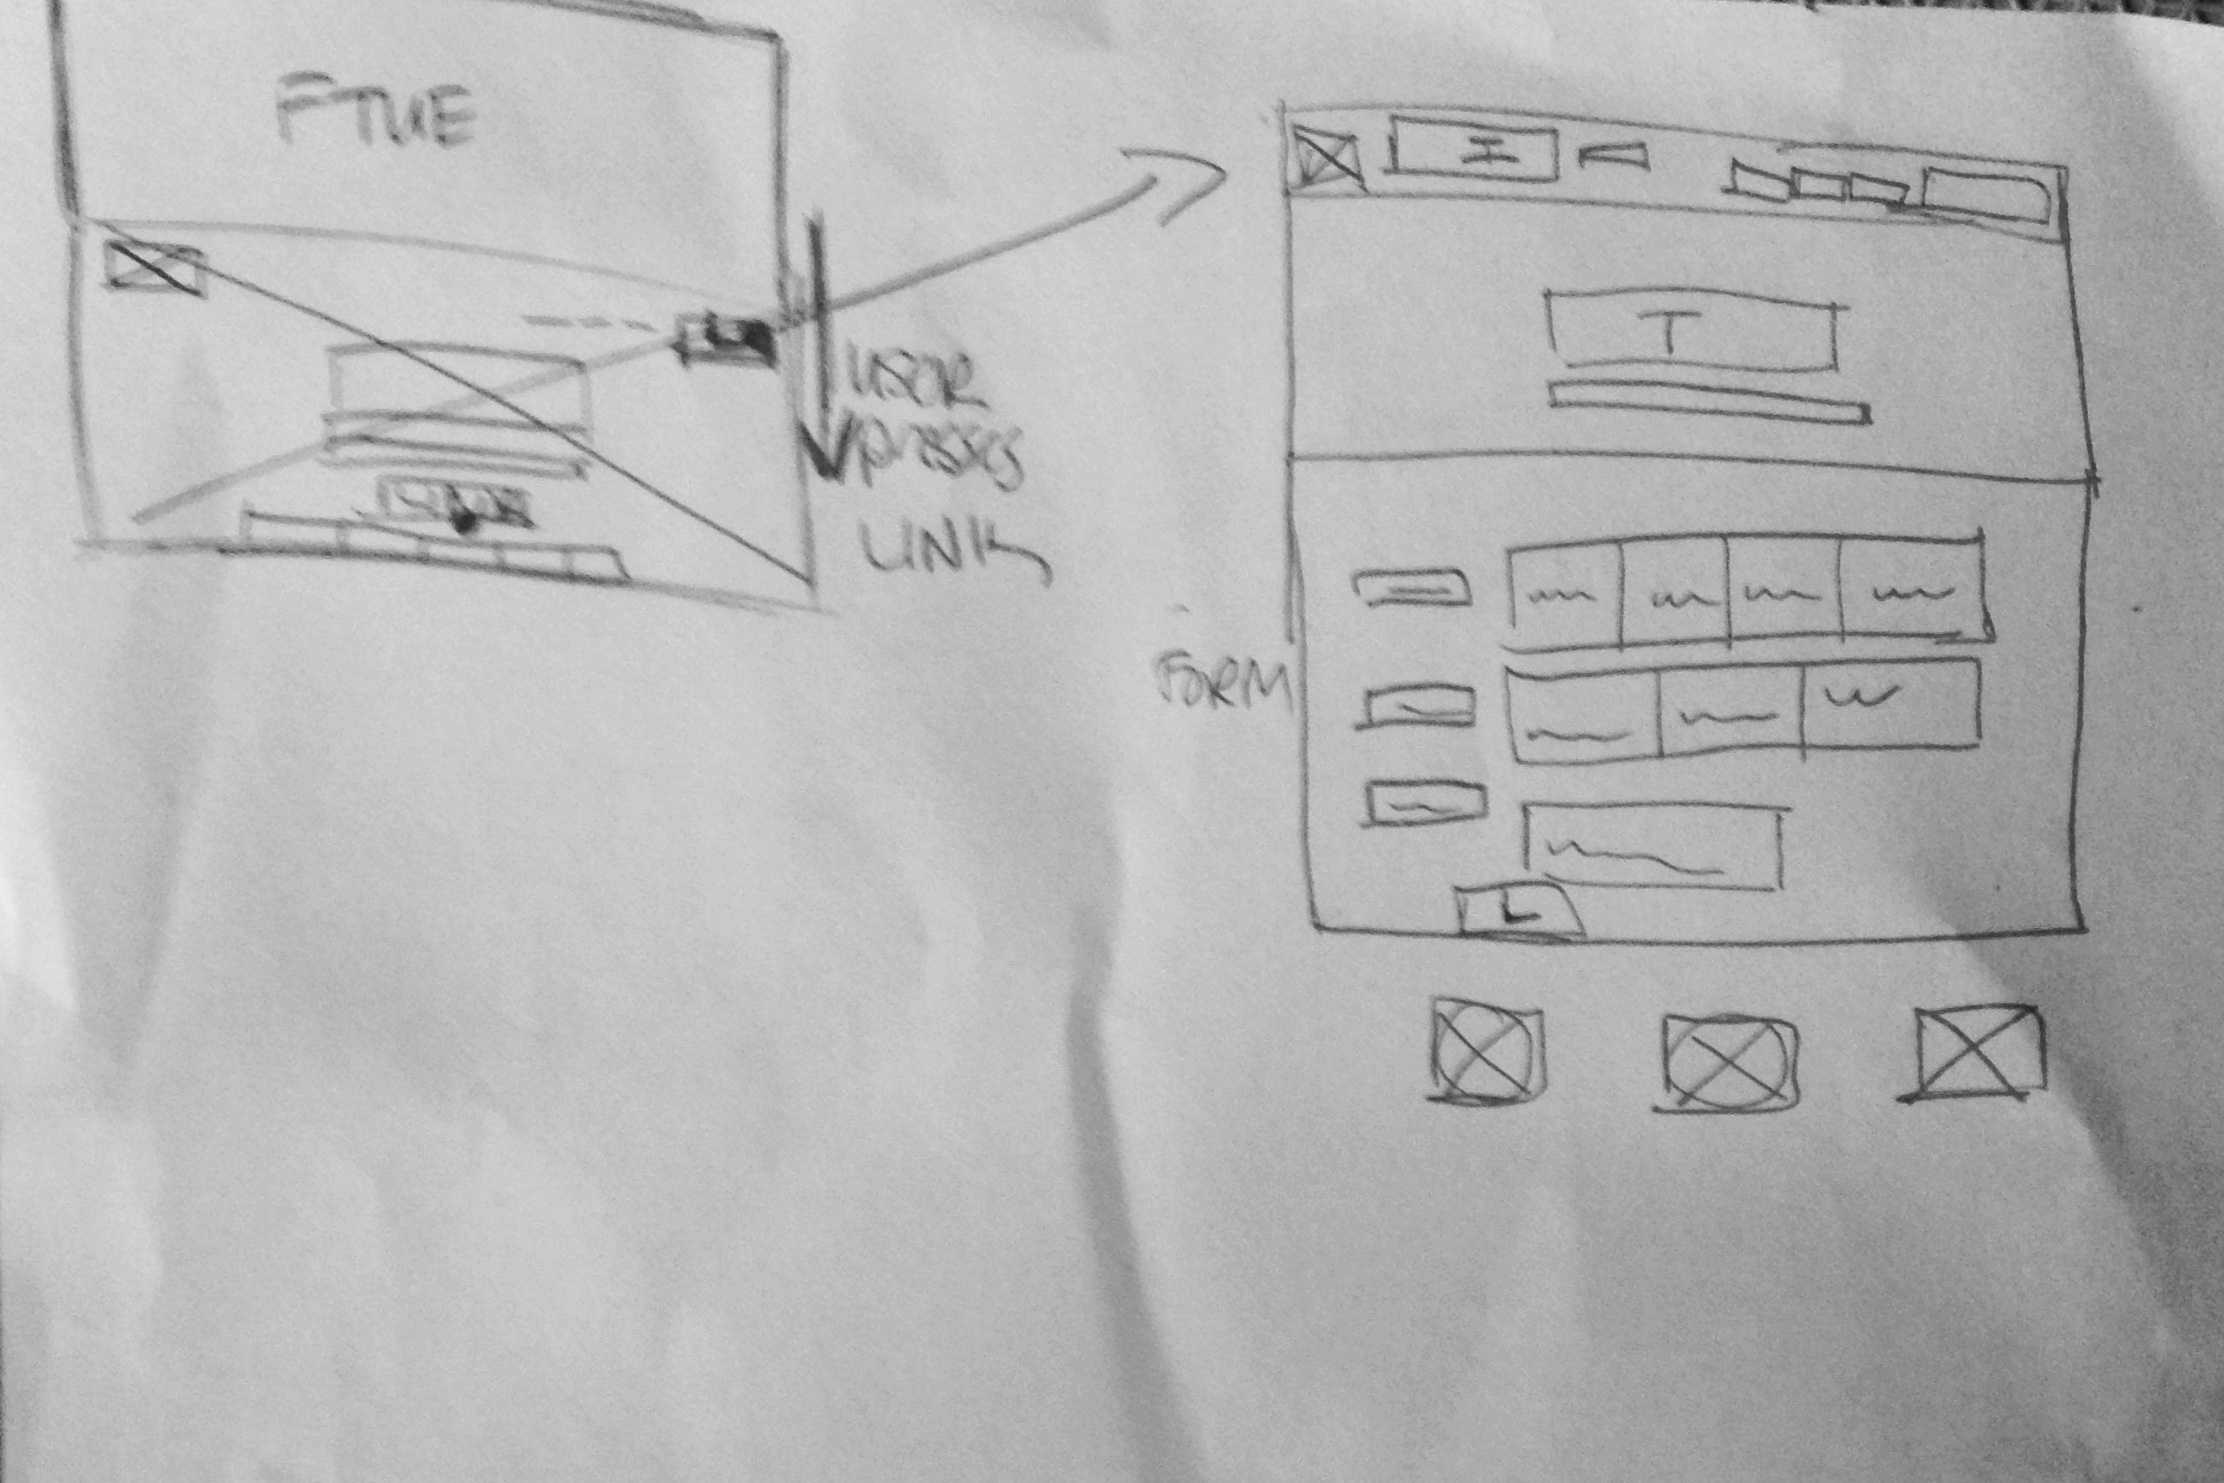 FTUE
USER
presses
LINK
I
T
FORM
L